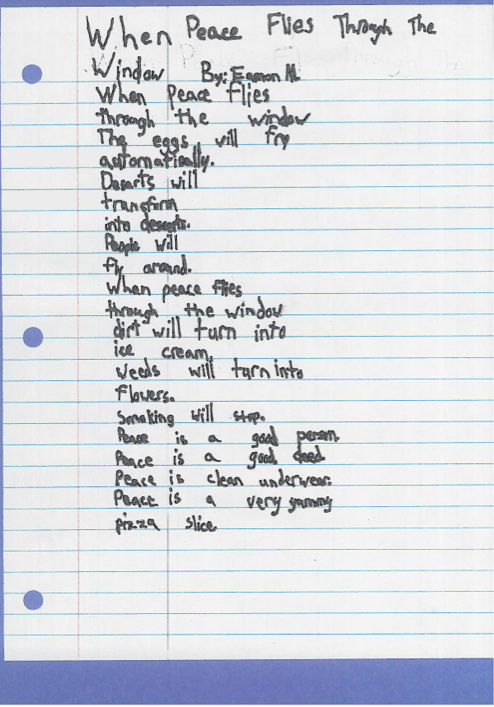 When Peace Flies Through The
Window By: Eamon M.
When Peace flies
through the window
The eggs will fry
automatically.
Desarts will
transform
into desserts.
People will
fly around.
When peace flies
through the window
dirt will turn into
ice cream.
Weeds will turn into
flowers.
Smoking will stop.
Peace is a good person.
Peace is a good deed.
Peace is clean underwear.
Peace is a very yummy
pizza slice